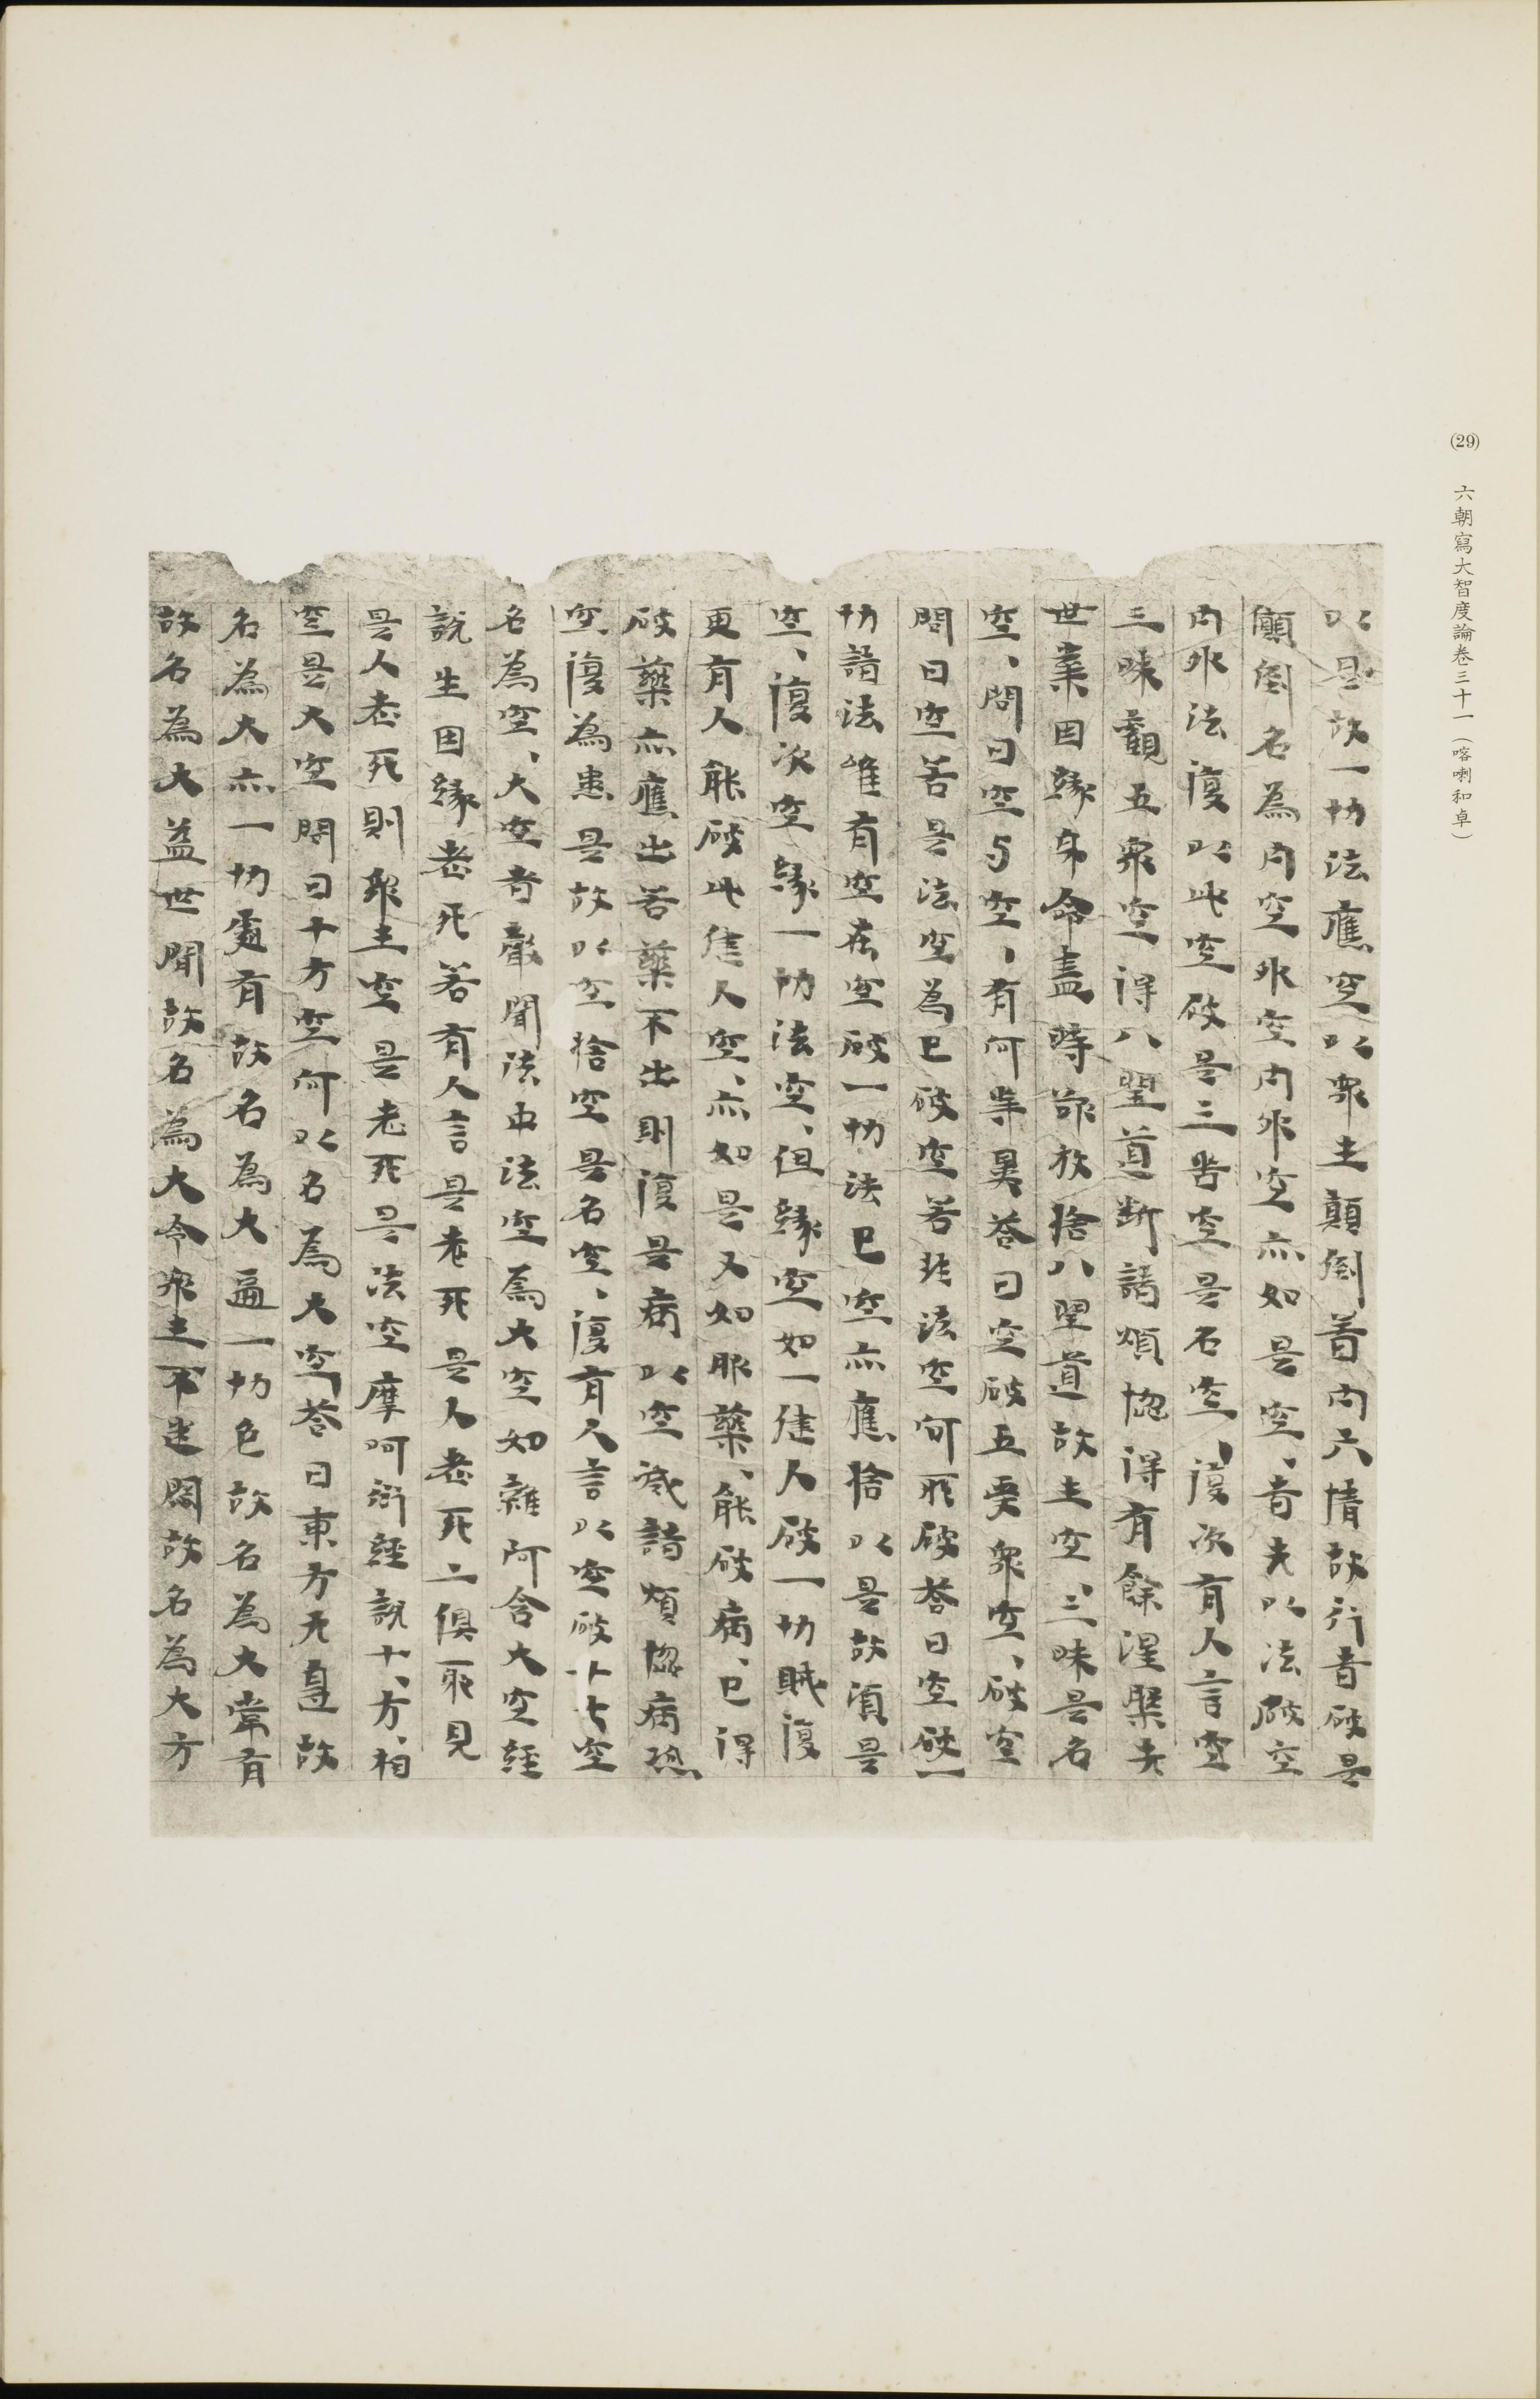 (29) 六朝寫大智度論卷三十一(喀喇和卓)
以是故一切法應空以衆生顛倒著内六情故行者破是
顛倒名為内空外空内外空亦如是空、者先以法破空
内外法復以此空破是三苦空是名空、復次有人言空
三昧觀五衆空得八聖道斷諸煩惚得有餘涅槃先
世業因緣身命盡時欲放捨八聖道故生空、三昧是名
空、問曰空与空、有何等異荅曰空破五受衆空、破空
問曰空若是法空為已破空若非法空何所破荅曰空破一
切諸法唯有空在空破一切法已空亦應捨以是故湏是
空、復次空緣一切法空、但緣空如一健人破一切賊復
更有人能破此健人空、亦如是又如服藥、能破病、已得
破藥亦應出若藥不出則復是病以空滅諸煩惚病恐
空復為患是故以空捨空是名空、復有人言以空破十七空
名為空、大空者聲聞法中法空為大空如雜阿含大空經
說生因緣老死若有人言是老死是人老死二俱耶見
是人老死則衆生空是老死是法空摩呵衍經說十、方、相
空是大空問曰十方空何以名為大空荅曰東方无邊故
名為大亦一切處有故名為大遍一切色故名為大常有
故名為大益世間故名為大令衆生不迷悶故名為大方